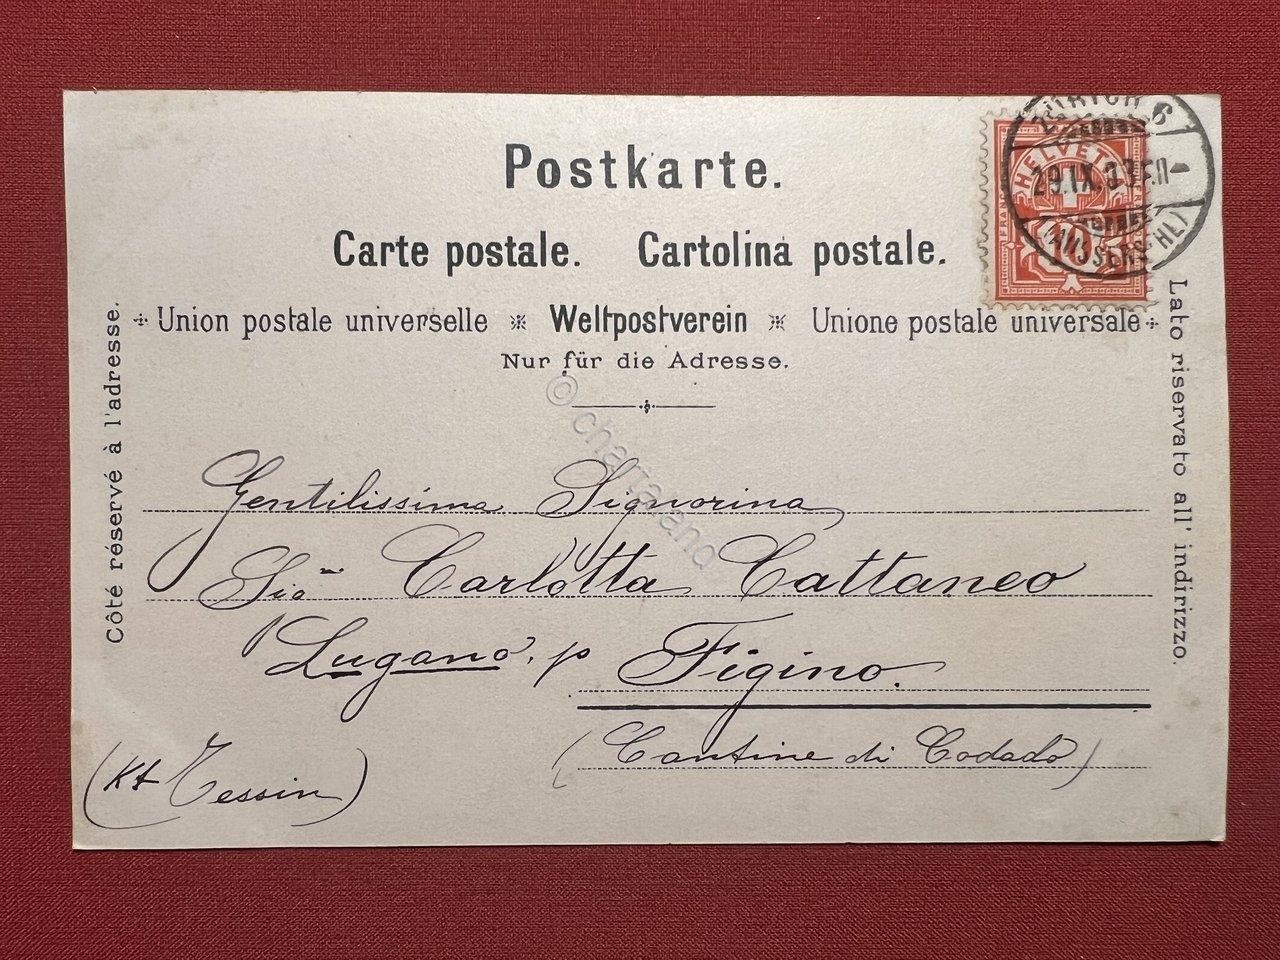 Postkarte.
Carte postale. Cartolina postale.
Union postale universelle Weltpostverein Unione postale universale
Nur für die Adresse.
Côté réservé à l'adresse.
Lato riservato all' indirizzo.
ZÜRICH 6
29.IX.03.
(AUSSERSIHL)
HELVETIA
FRANCO
10
Gentilissima Signorina
Carlotta Cattaneo
Lugano, p Figino.
(Cantine di Codado)
(Kt Tessin)
© chartaland